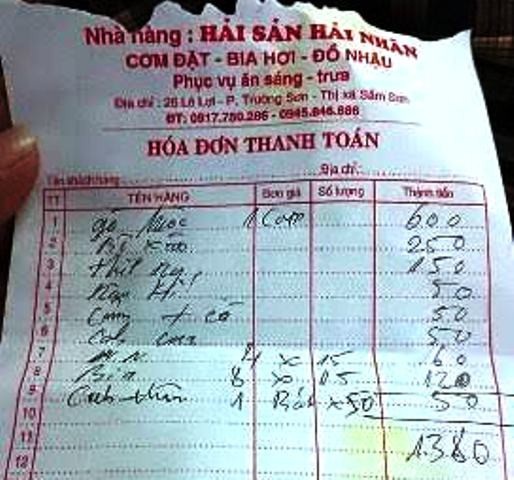 Nhà hàng : HẢI SẢN HẢI NHÂN
CƠM ĐẶT - BIA HƠI - ĐỒ NHẬU
Phục vụ ăn sáng - trưa
Địa chỉ : 26 Lê Lợi - P. Trường Sơn - Thị xã Sầm Sơn
ĐT: 0917.780.286 - 0945.846.886
HÓA ĐƠN THANH TOÁN
Tên khách hàng Địa chỉ:
TT TÊN HÀNG Đơn giá Số lượng Thành tiền
1 1 600
2 250
3 thịt 150
4 50
5 + cà 50
6 Cơm 50
7 4 x 15 60
8 Bia 8 x 15 120
9 Canh 1 Bát x 50 50
10
11 1380
12